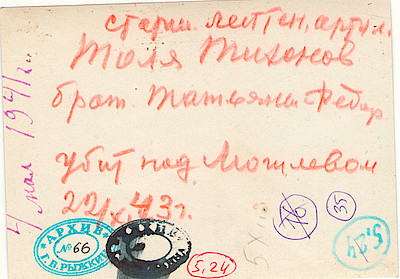 старш. лейтен. артил.
Толя Тихонов
брат Татьяны Федор
убит под Могилевом
22/X. 43 г.
4 мая 1941 г.
АРХИВ
№ 66
Г. В. РЫЖКИ
5,24
5 X
76
35
5,24